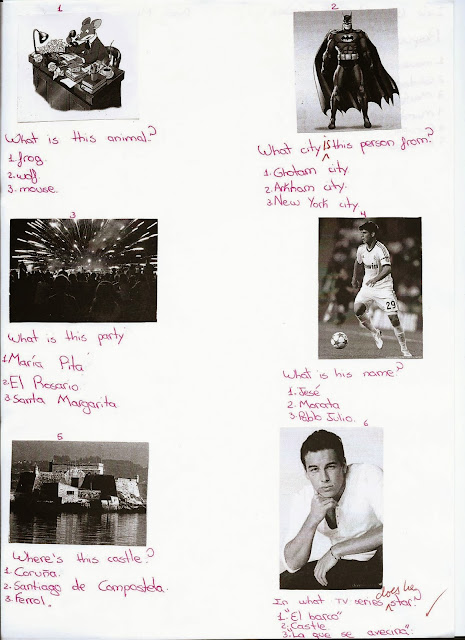 1
What is this animal?
1. frog.
2. wolf
3. mouse.
2
What city is this person from?
1. Ghotam city.
2. Arkham city.
3. New York city.
3
What is this party
1 María Pita
2. El Rosario
3 Santa Margarita
4
29
What is his name?
1. Jesé
2. Morata
3. Pablo Julio.
5
Where's this castle?
1. Coruña.
2. Santiago de Compostela.
3. Ferrol.
6
In what TV series does he star?
1. "El barco"
2. Castle.
3. "La que se avecina".